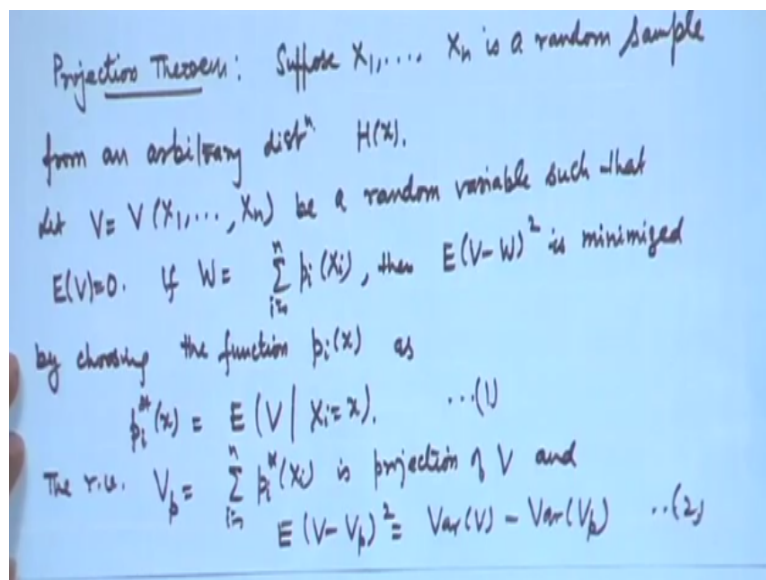 Projection Theorem: Suppose X₁,.... Xₙ is a random sample
from an arbitrary distⁿ H(x).
Let V = V(X₁,...,Xₙ) be a random variable such that
E(V)=0. If W = Σᵢ₌₁ⁿ pᵢ(Xᵢ), then E(V-W)² is minimized
by choosing the function pᵢ(x) as
pᵢ*(x) = E(V | Xᵢ=x). ...(1)
The r.v. Vₚ = Σᵢ₌₁ⁿ pᵢ*(Xᵢ) is projection of V and
E(V-Vₚ)² = Var(V) - Var(Vₚ) ..(2)